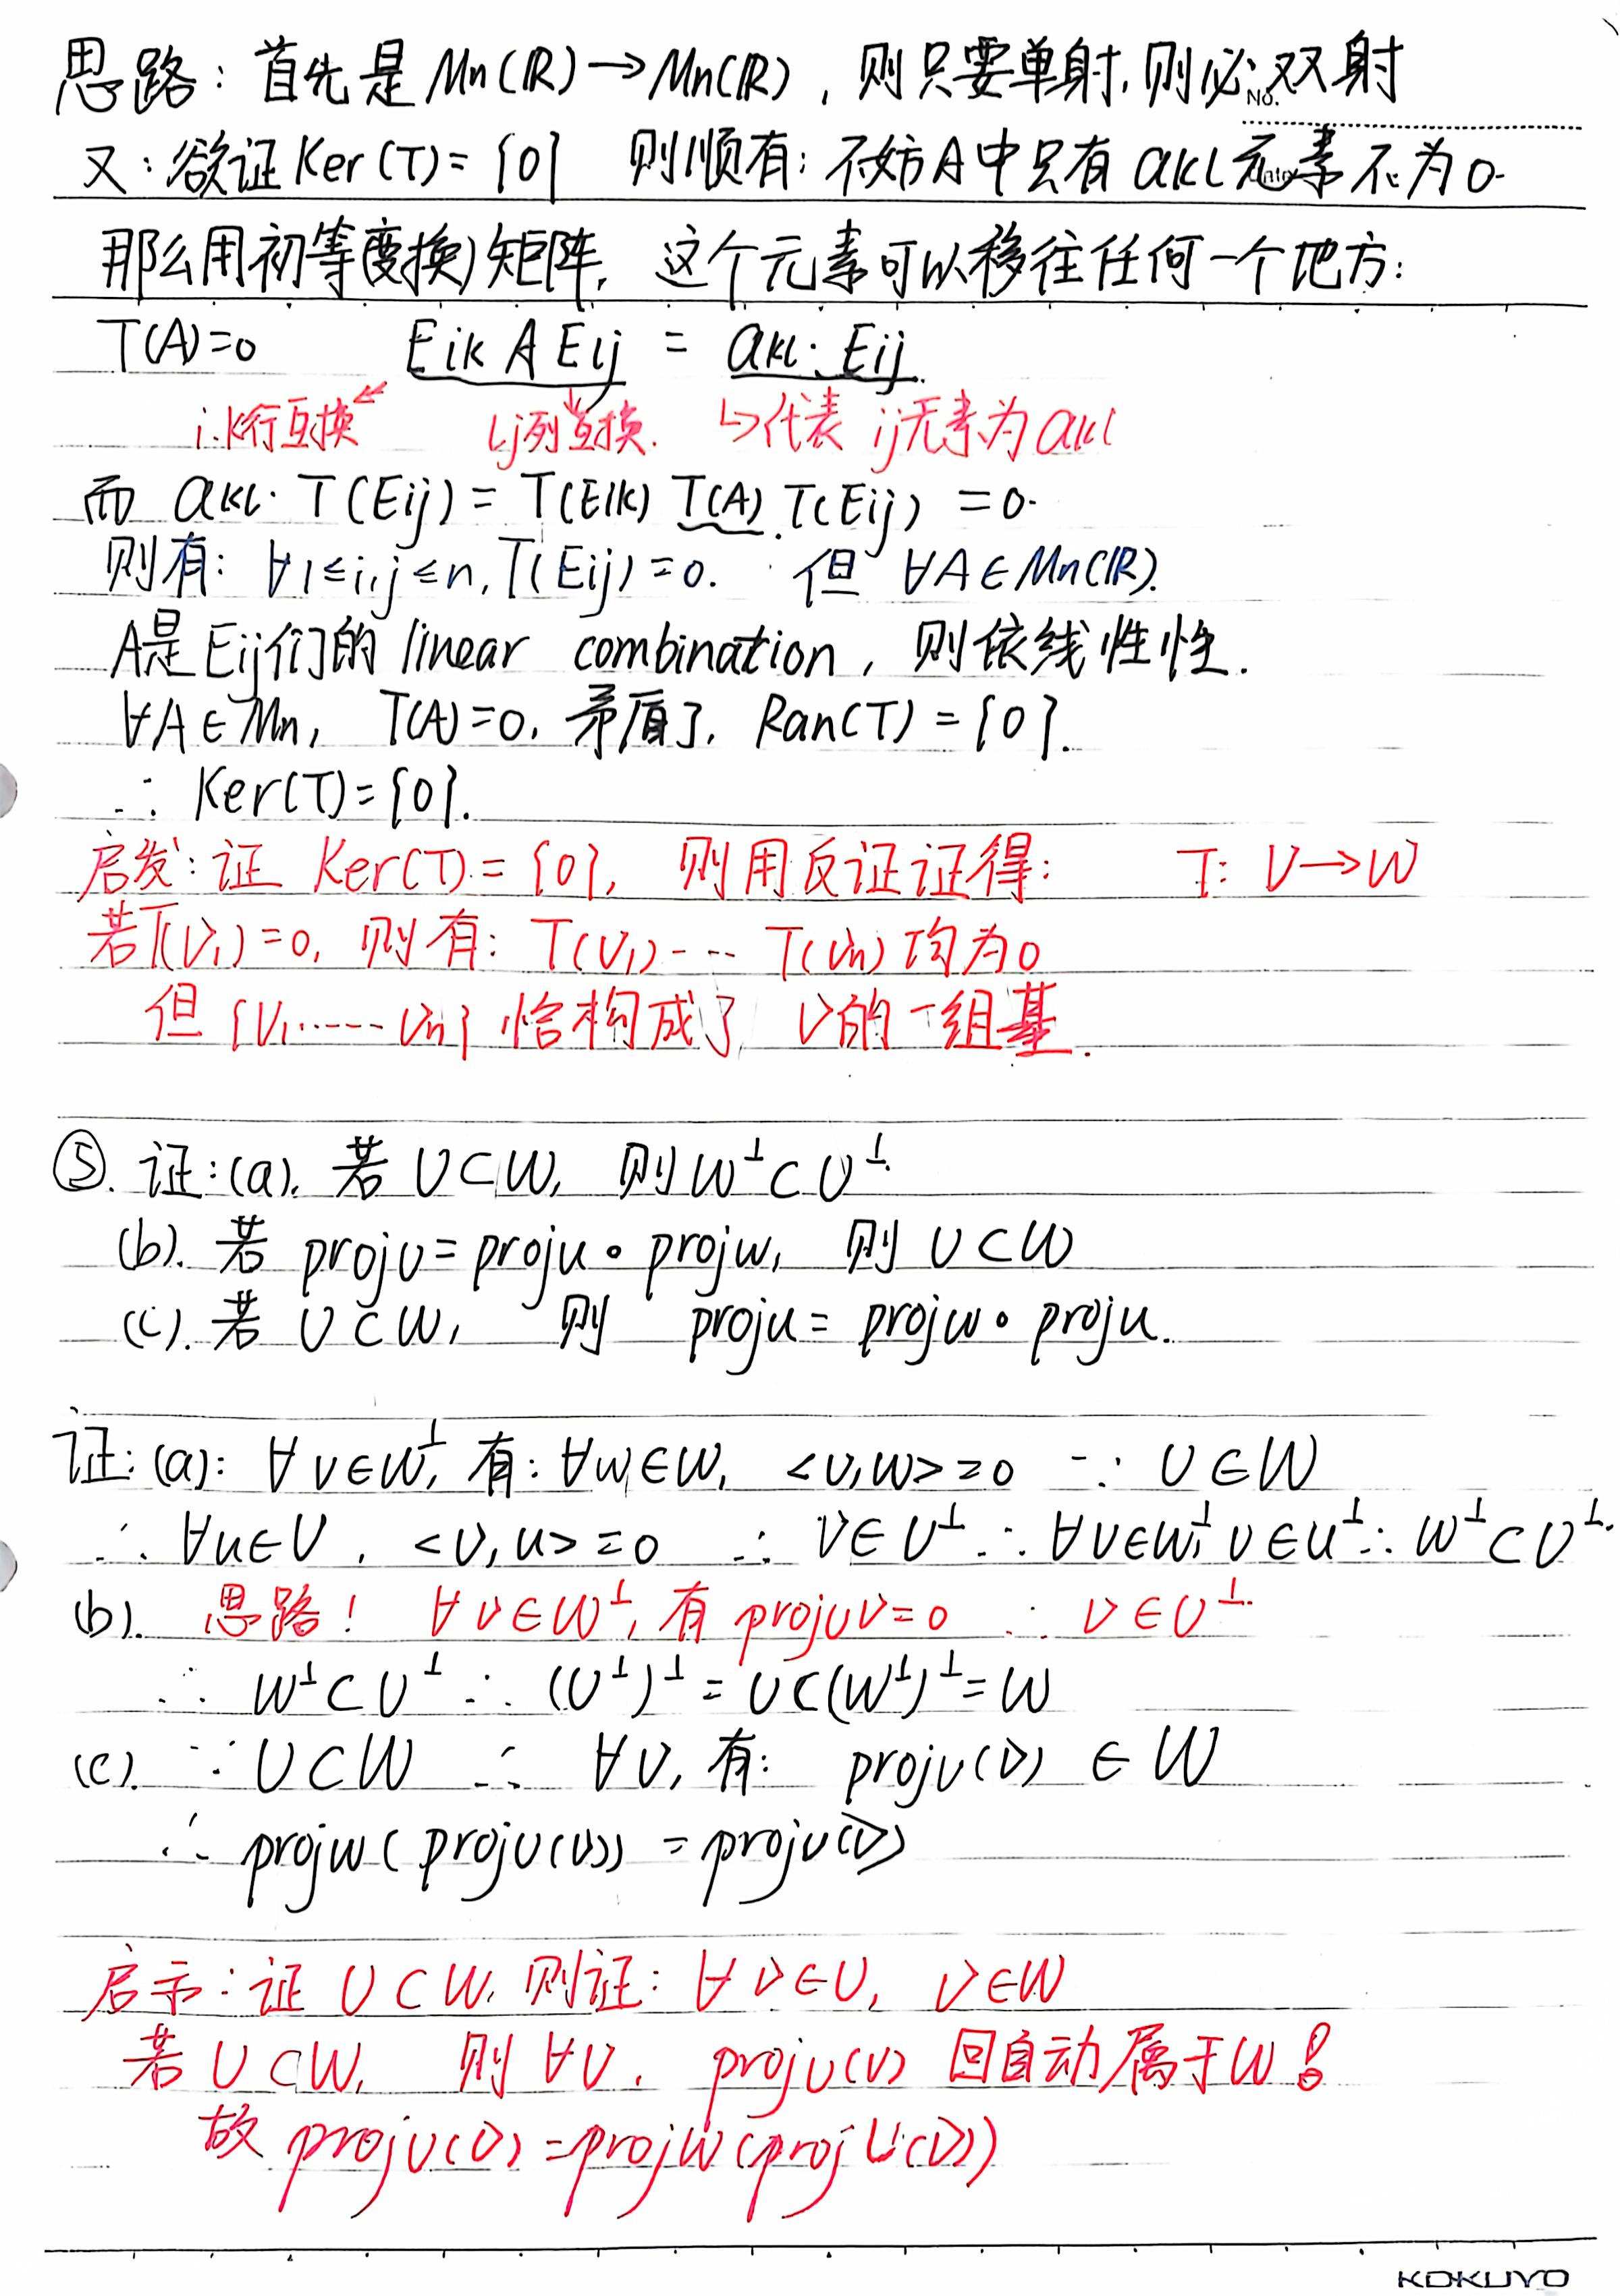 思路：首先是 Mn(ℝ)→Mn(ℝ)，则只要单射,则必双射
No.
又：欲证 Ker(T)={0} 则顺有：不妨A中只有 akl 元素不为0.
那么用初等(变换)矩阵, 这个元素可以移往任何一个地方：
T(A)=0 Eik A Elj = akl· Eij.
i.k行互换 lj列互换. ↳代表 ij元素为 akl
而 akl· T(Eij) = T(Eik) T(A) T(Eij) = 0.
则有：∀1≤i,j≤n, T(Eij)=0. 但 ∀A∈Mn(ℝ).
A是Eij们的 linear combination, 则依线性性.
∀A∈Mn, T(A)=0, 矛盾了, Ran(T)={0}.
∴ Ker(T)={0}.
启发：证 Ker(T)={0}, 则用反证证得： T: V→W
若T(V1)=0, 则有：T(V1)--- T(Vn) 均为0
但 {V1......Vn} 恰构成了 V的一组基.
⑤. 证：(a). 若 U⊂W, 则W⊥⊂U⊥.
(b). 若 proju = proju∘projw, 则 U⊂W
(c). 若 U⊂W, 则 proju = projw∘proju.
证：(a)：∀v∈W⊥, 有：∀w∈W, <v,w>=0 ∵ U∈W
∴ ∀u∈U, <v,u>=0 ∴ v∈U⊥ ∴ ∀v∈W⊥, v∈U⊥ ∴ W⊥⊂U⊥.
(b). 思路！ ∀v∈W⊥, 有 projuv=0 ∴ v∈U⊥.
∴ W⊥⊂U⊥ ∴ (U⊥)⊥=U⊂(W⊥)⊥=W
(c). ∵U⊂W ∴ ∀v, 有： proju(v) ∈ W
∴ projw(proju(v)) = proju(v)
启示：证 U⊂W, 则证：∀v∈U, v∈W
若 U⊂W, 则 ∀v, proju(v) 回自动属于W！
故 proju(v)=projw(proju(v))
KOKUYO